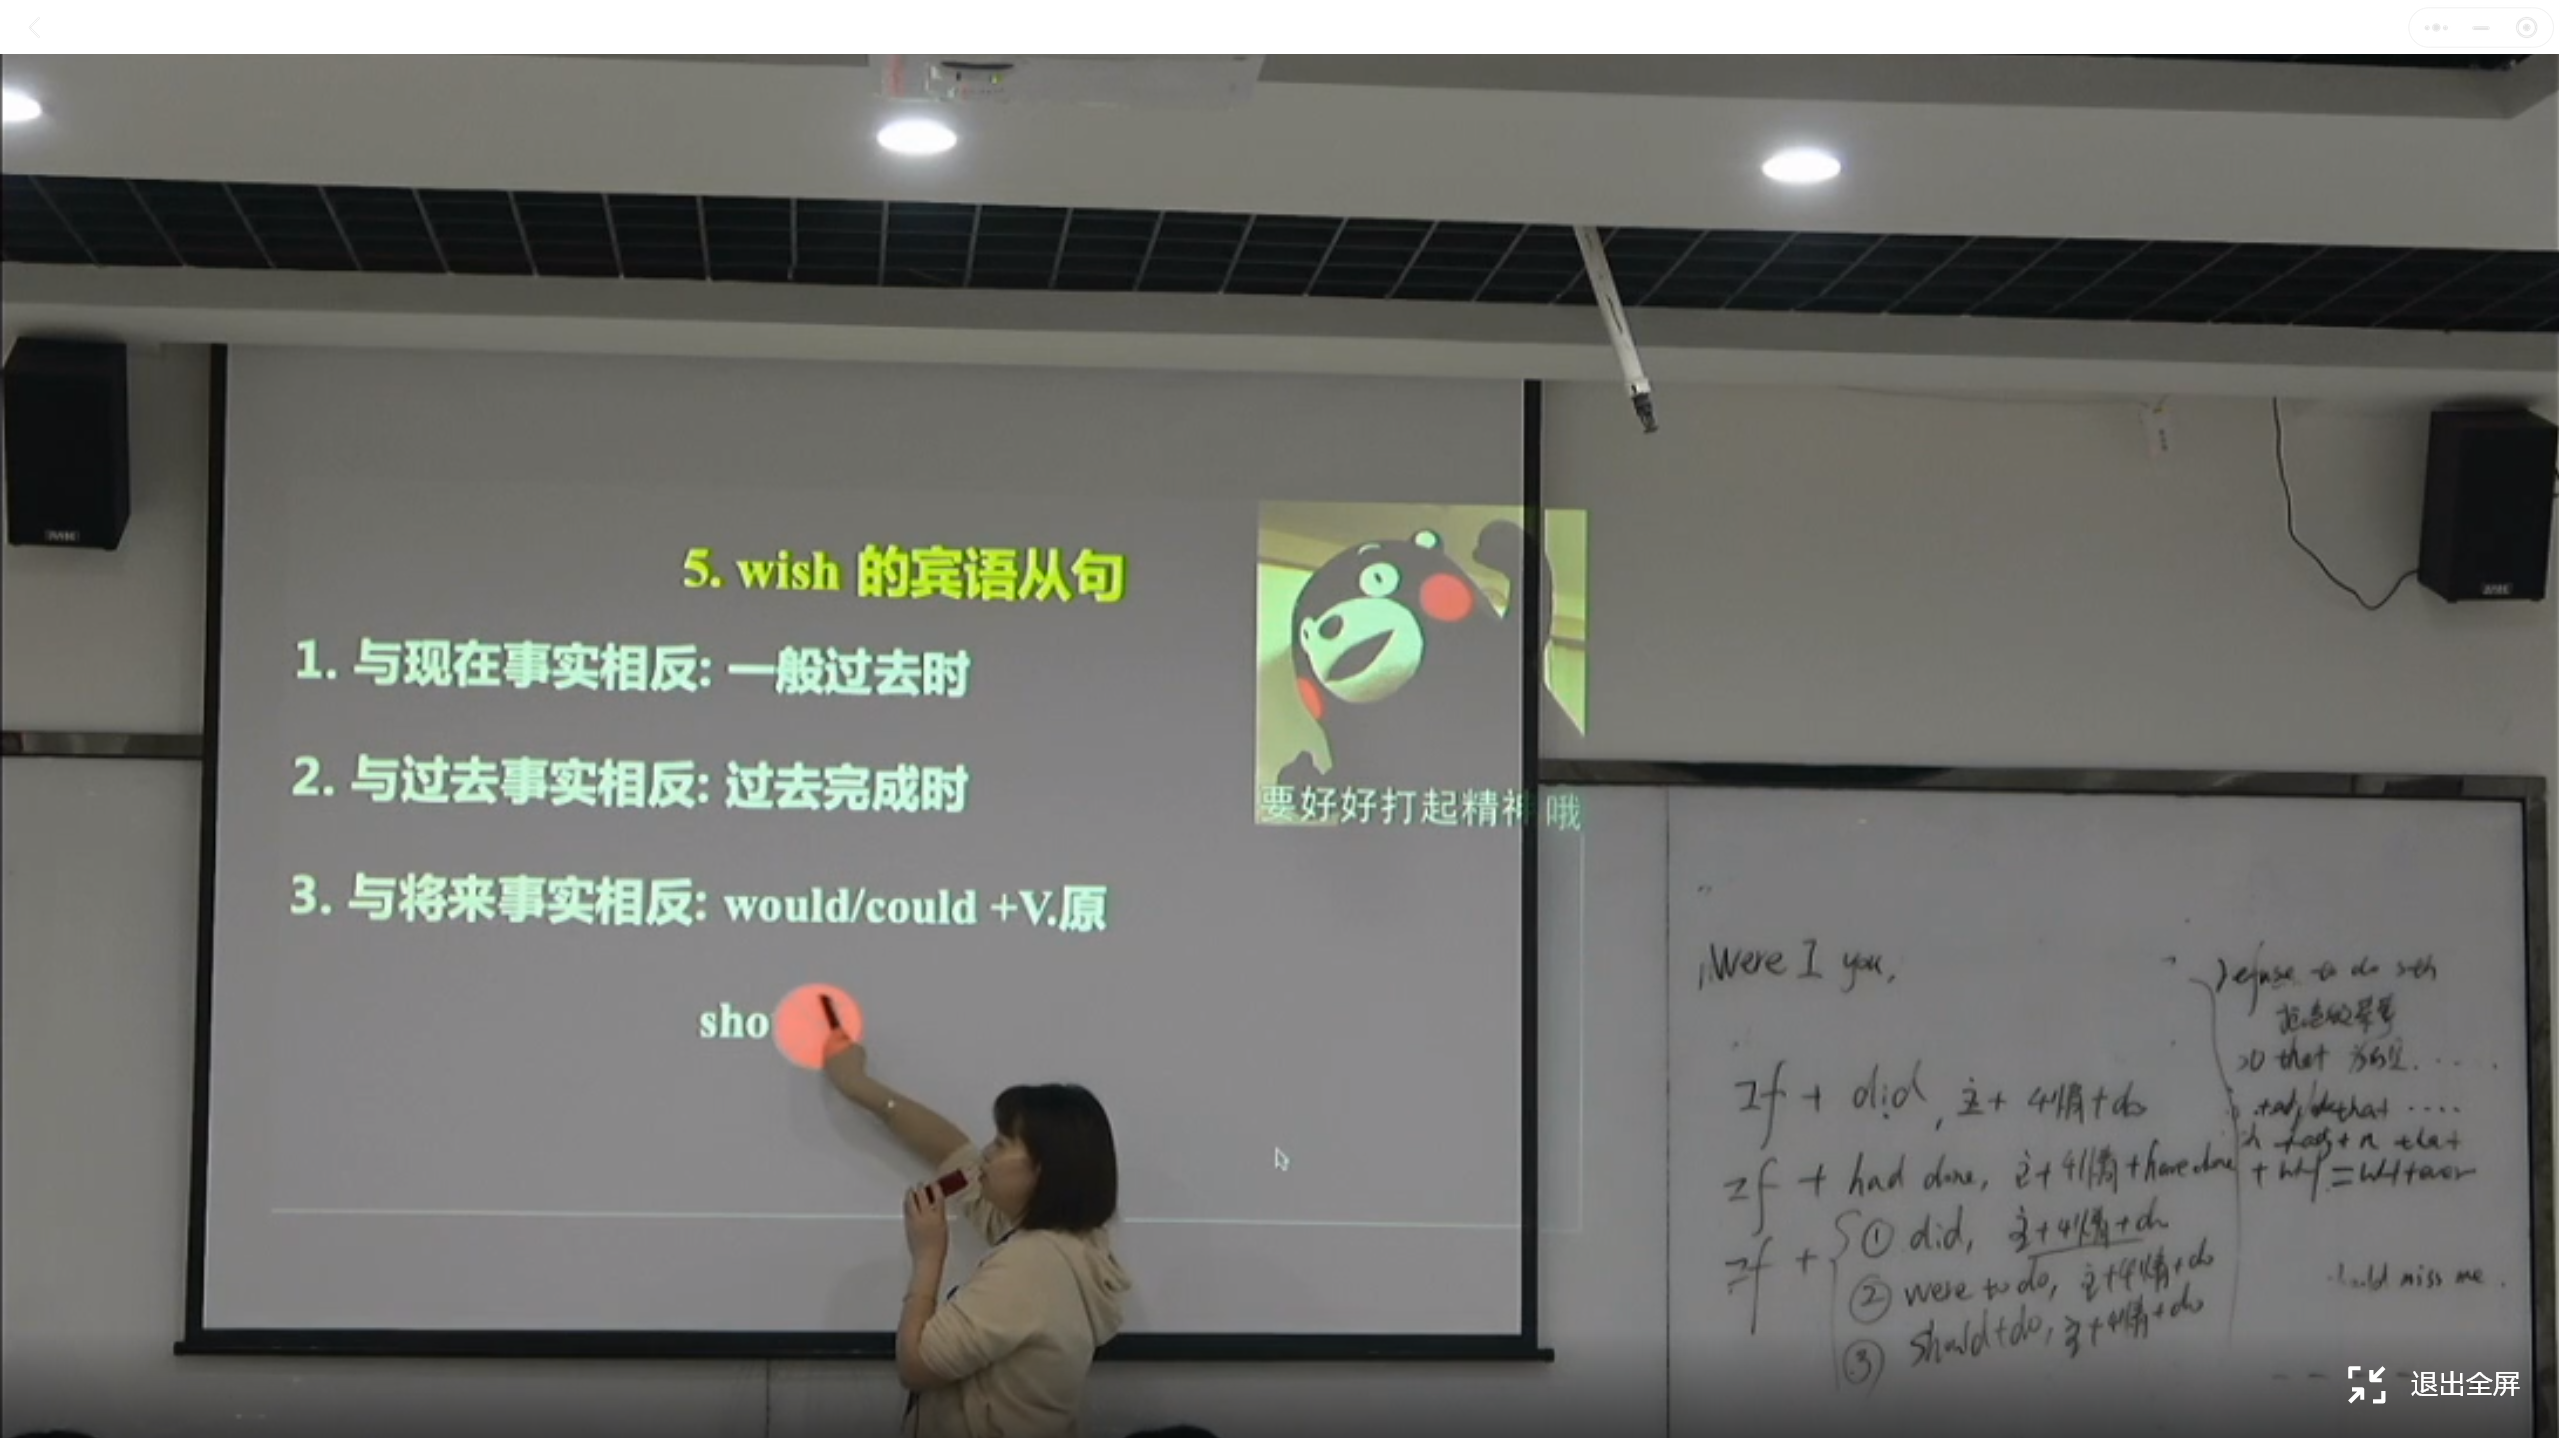 5. wish 的宾语从句
1. 与现在事实相反: 一般过去时
2. 与过去事实相反: 过去完成时
3. 与将来事实相反: would/could +V.原
sho
要好好打起精神哦
Were I you,
If + did, 主+4情+do
If + had done, 主+4情+have done
If + ① did, 主+4情+do
② were to do, 主+4情+do
③ should+do, 主+4情+do
refuse to do sth
so that
that ....
+adj+n that
miss me.
退出全屏